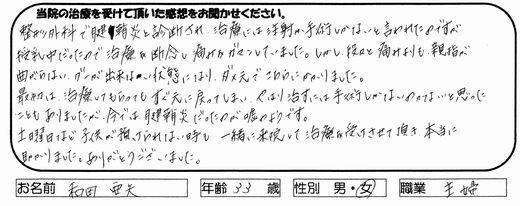 当院の治療を受けて頂いた感想をお聞かせください。
整形外科で腱鞘炎と診断され、治療には注射か手術しかないと言われたのですが
授乳中だったので治療を断念し痛みをガマンしていました。しかし段々と痛みよりも親指が
曲がらない、グーが出来ない状態になり、ダメ元でこちらにかかりました。
最初は、治療してもらってもすぐ元に戻ってしまい、やはり治すには手術しかないのかな…と思った
こともありましたが、今では腱鞘炎だったのが嘘のようです。
土曜日など子供が預けられない時も一緒に来院して治療を受けさせて頂き本当に
助かりました。ありがとうございました。
お名前 和田 亜矢 年齢 33 歳 性別 男・女 職業 主婦